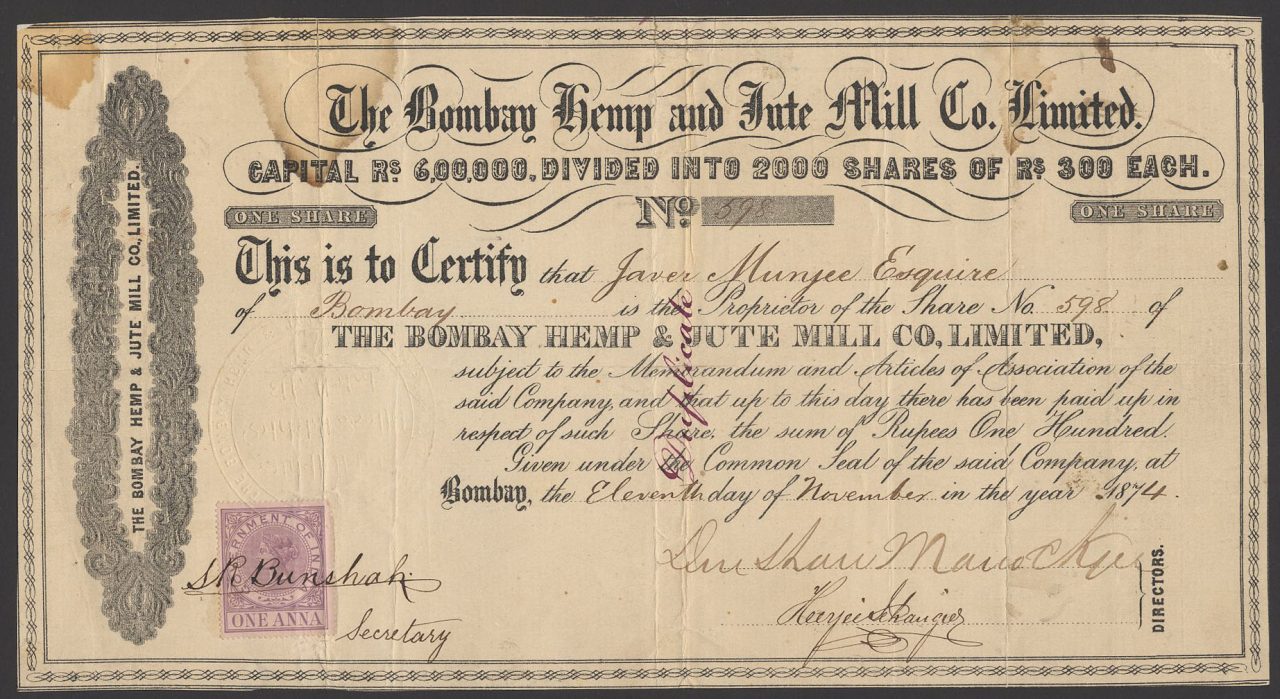 The Bombay Hemp and Jute Mill Co. Limited.
CAPITAL Rs 6,00,000, DIVIDED INTO 2000 SHARES OF Rs 300 EACH.
ONE SHARE
No. 598
ONE SHARE
This is to Certify that Javer Munjee Esquire
of Bombay is the Proprietor of the Share No. 598 of
THE BOMBAY HEMP & JUTE MILL CO, LIMITED,
subject to the Memorandum and Articles of Association of the
said Company, and that up to this day there has been paid up in
respect of such Share, the sum of Rupees One Hundred.
Given under the Common Seal of the said Company, at
Bombay, the Eleventh day of November in the year 1874.
Duplicate
THE BOMBAY HEMP & JUTE MILL CO., LIMITED.
GOVERNMENT OF INDIA
ONE ANNA
SR Bunshah
Secretary
Dinshaw Manockjee
DIRECTORS.